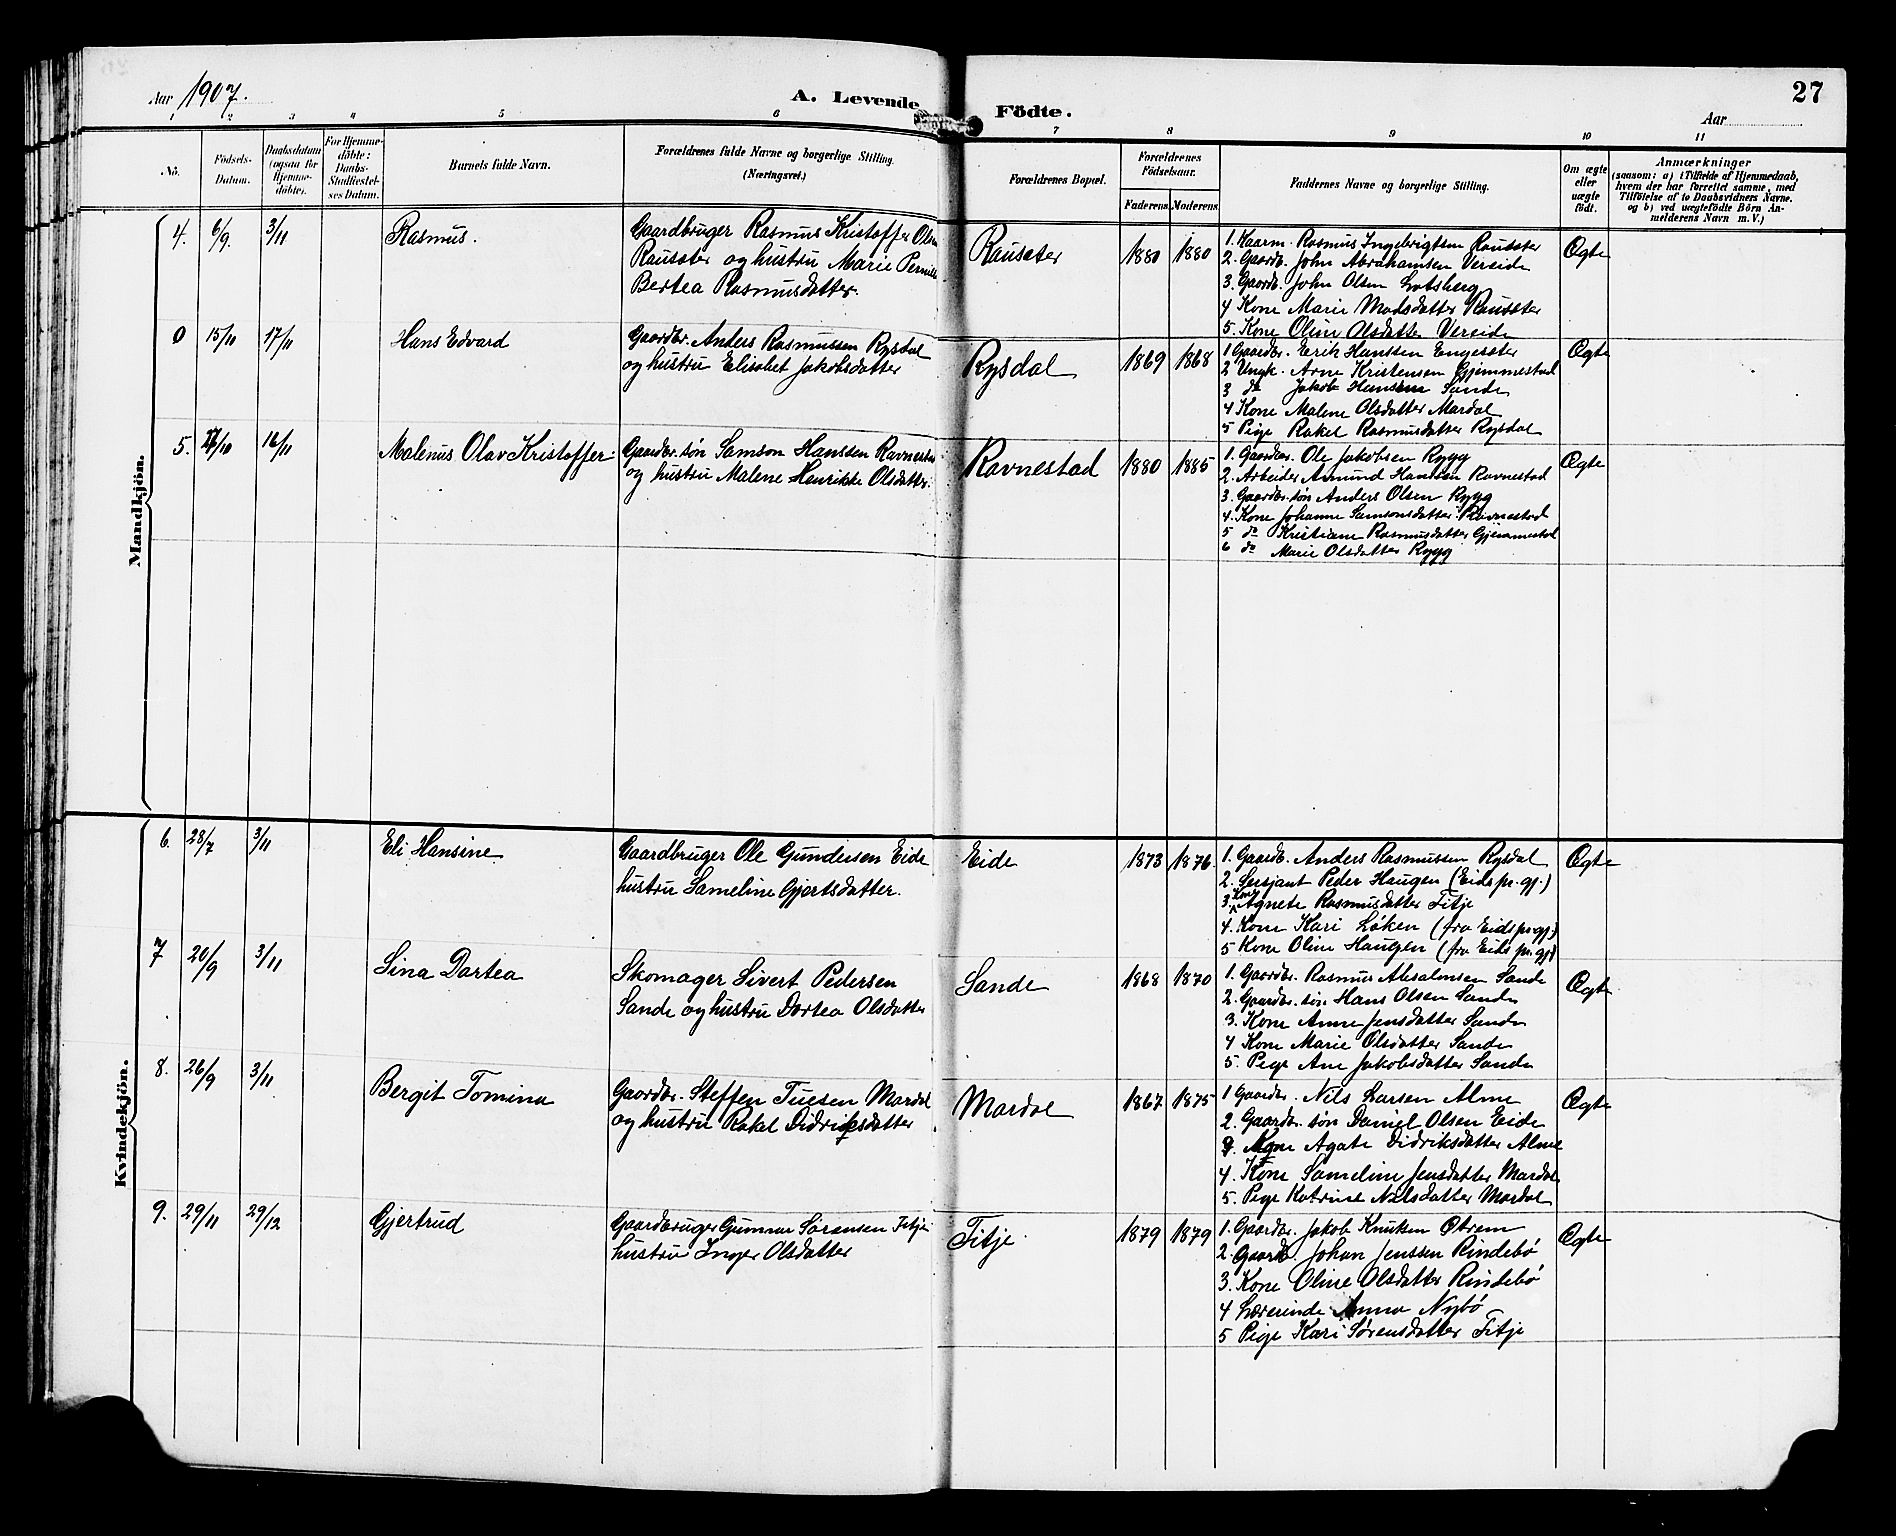 Aar 1907.
A. Levende Födte.
27
Aar
1 2 3 4 5 6 7 8 9 10 11
No.
Födsels-Datum.
Daabsdatum (ogsaa for Hjemmedöbte).
For Hjemmedöbte: Daabs-Stadfæstelses Datum.
Barnets fulde Navn.
Forældrenes fulde Navne og borgerlige Stilling.
(Næringsvei.)
Forældrenes Bopæl.
Forældrenes Födselsaar.
Faderens. Moderens.
Faddernes Navne og borgerlige Stilling.
Om ægte eller uægte födt.
Anmærkninger
(saasom: a) i Tilfælde af Hjemmedaab, hvem der har forrettet samme, med Tilföielse af to Daabsvidners Navne. og b) ved uægtefödte Börn Anmelderens Navn m. V.)
Mandkjön.
4. 6/9. 3/11 Rasmus. Gaardbruger Rasmus Kristoffer Olsen
Rausæter og hustru Marie Pernille
Bertea Rasmusdatter.
Rausæter 1880 1880
1. Kaarm. Rasmus Ingebrigtsen Rausæter
2. Gaardb. John Abrahamsen Vereide
3. Gaardb. John Olsen Lotsberg
4 Kone Marie Madsdatter Rausæter
5. Kone Oline Olsdatter Vereide
Ægte
0 15/10 17/11 Hans Edvard Gaardbr. Anders Rasmussen Rysdal
og hustru Elisabet Jakobsdatter
Rysdal 1869 1868
1 Gaardbr. Erik Hanssen Engesæter
2 Ungk. Arne Kristensen Gjemmestad
3 do Jakob Hansen Sande
4 Kone Malene Olsdatter Mardal
5 Pige Rakel Rasmusdatter Rysdal
Ægte
5. /10 16/11 Malenus Olav Kristoffer. Gaardbr. søn Samson Hanssen Ravnestad
og hustru Malene Henrikke Olsdatter.
Ravnestad 1880 1885
1. Gaardbr. Ole Jakobsen Rygg
2. Arbeider Amund Hanssen Ravnestad
3. Gaardbr. søn Anders Olsen Rygg
4. Kone Johanne Samsonsdatter Ravnestad
5 do Kristiane Rasmusdatter Gjemmestad
6 do Marie Olsdatter Rygg
Ægte
Kvindekjön.
6. 28/7 3/11 Eli Hansine Gaardbruger Ole Gundersen Eide
hustru Sameline Gjertsdatter.
Eide 1873 1876.
1. Gaardb. Anders Rasmussen Rysdal
2. Sersjant Peder Haugen (Eids pr.gj.)
3. Kone Agnete Rasmusdatter Fitje
4. Kone Kari Løken (fra Eids pr.gj.)
5 Kone Oline Haugen (fra Eids pr.gj.)
Ægte
7 20/9 3/11 Sina Dortea Skomager Sivert Pedersen
Sande og hustru Dortea Olsdatter
Sande 1868 1870
1. Gaardbr. Rasmus Absalonsen Sande
2. Gaardbr. søn Hans Olsen Sande
3. Kone Anne Jensdatter Sande
4 Kone Marie Olsdatter Sande
5. Pige Ane Jakobsdatter Sande
Ægte
8. 26/9 3/11 Bergit Tomina Gaardbr. Steffen Tuesen Mardal
og hustru Rakel Didriksdatter
Mardal 1867 1875
1 Gaardbr. Nils Larsen Alme
2. Gaardbr. søn Daniel Olsen Eide
3. Kone Agate Didriksdatter Alme
4. Kone Sameline Jensdatter Mardal
5. Pige Katrine Nilsdatter Mardal
Ægte
9. 29/11 29/12 Gjertrud Gaardbruger Gunnar Sørensen Fitje
hustru Inger Olsdatter
Fitje. 1879 1879
1. Gaardbr. Jakob Knutsen Otrem
2. Gaardb. Johan Jenssen Rindebø
3. Kone Oline Olsdatter Rindebø
4 Lærerinde Anna Nybø
5 Pige Kari Sørensdatter Fitje
Ægte